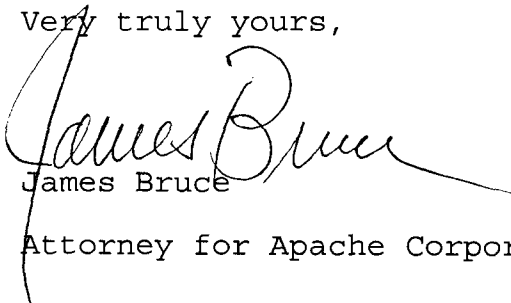 Very truly yours,
James Bruce
James Bruce
Attorney for Apache Corpor